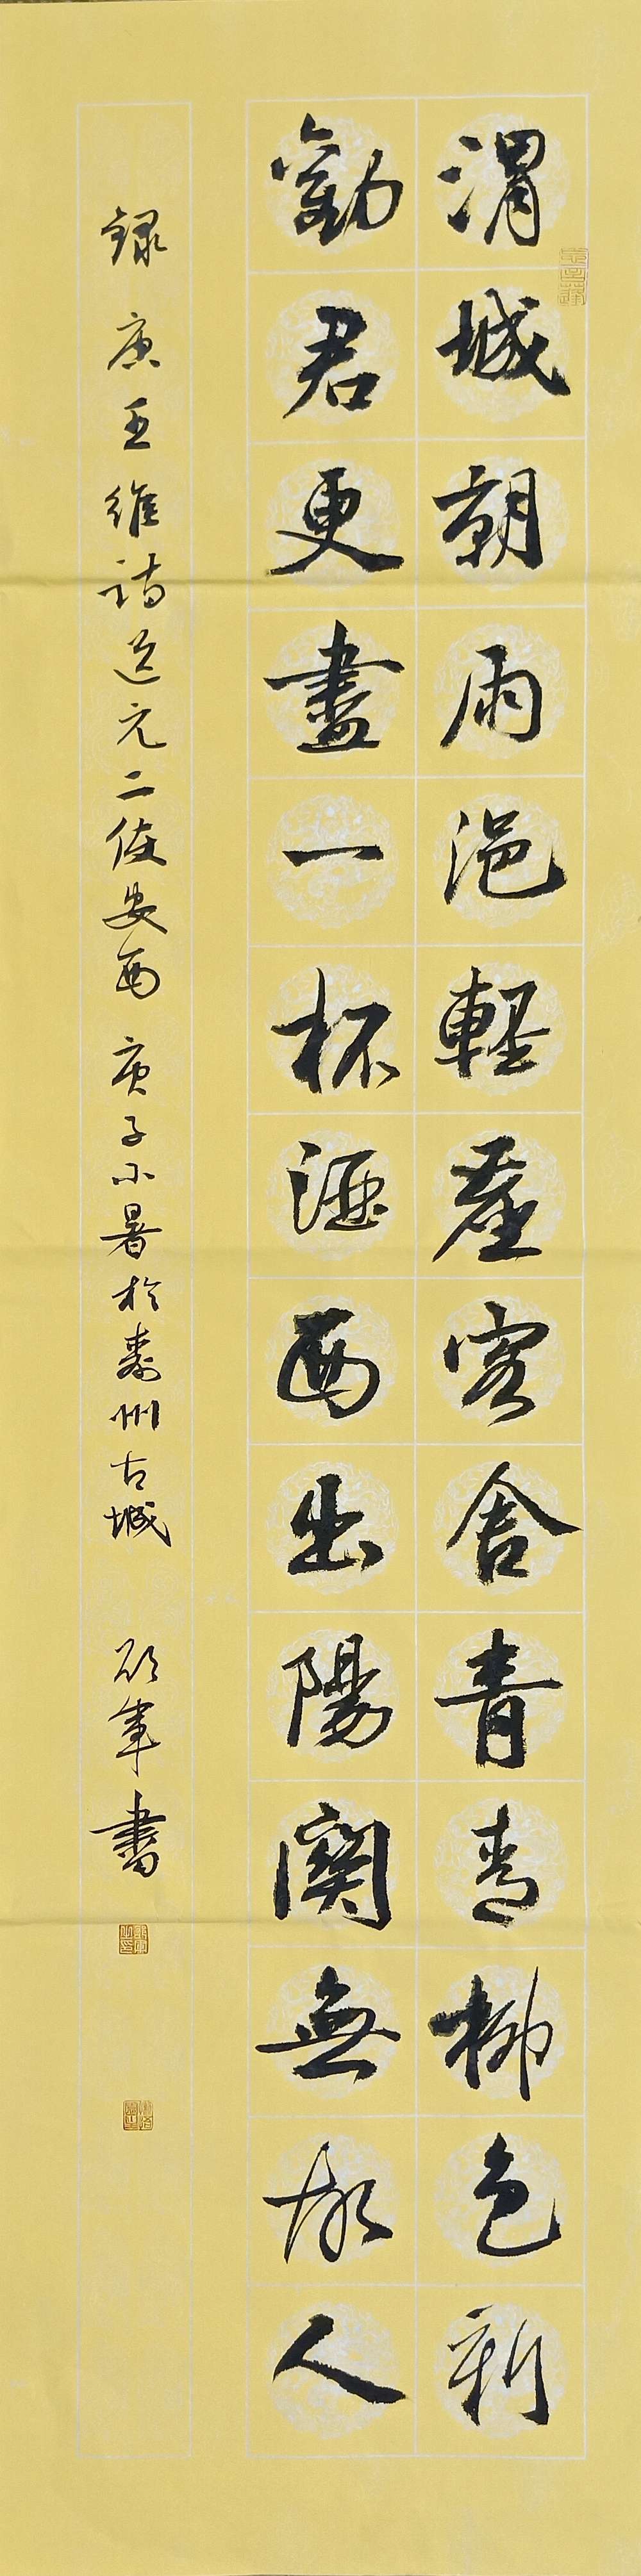 渭城朝雨浥輕塵客舍青青柳色新
勸君更盡一杯酒西出陽關無故人
録唐王維詩送元二使安西 庚子小暑於壽州古城 軍書